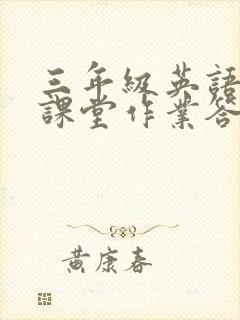 三年級英語
課堂作業答
黃康春